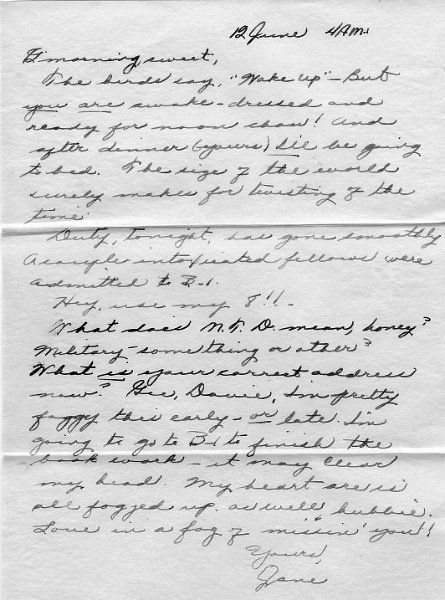 12 June 4AM.
G'morning sweet,
The birds say, "Wake up" - But
you are awake - dressed and
ready for noon chow! And
after dinner (yours) I'll be going
to bed. The size of the world
surely makes for twisting of the
time.
Duty, tonight, has gone smoothly
A couple intoxicated fellows were
admitted to B-1.
Hey, use my 8!!
What does N.F.D. mean, honey?
Military - something or other?
What is your correct address
now? Gee, Davie, I'm pretty
foggy this early - or late. I'm
going to go to B-1 to finish the
book work - it may clear
my head. My heart are is
all fogged up as well hubbie.
Love in a fog of missin' you!!
Yours,
Jane